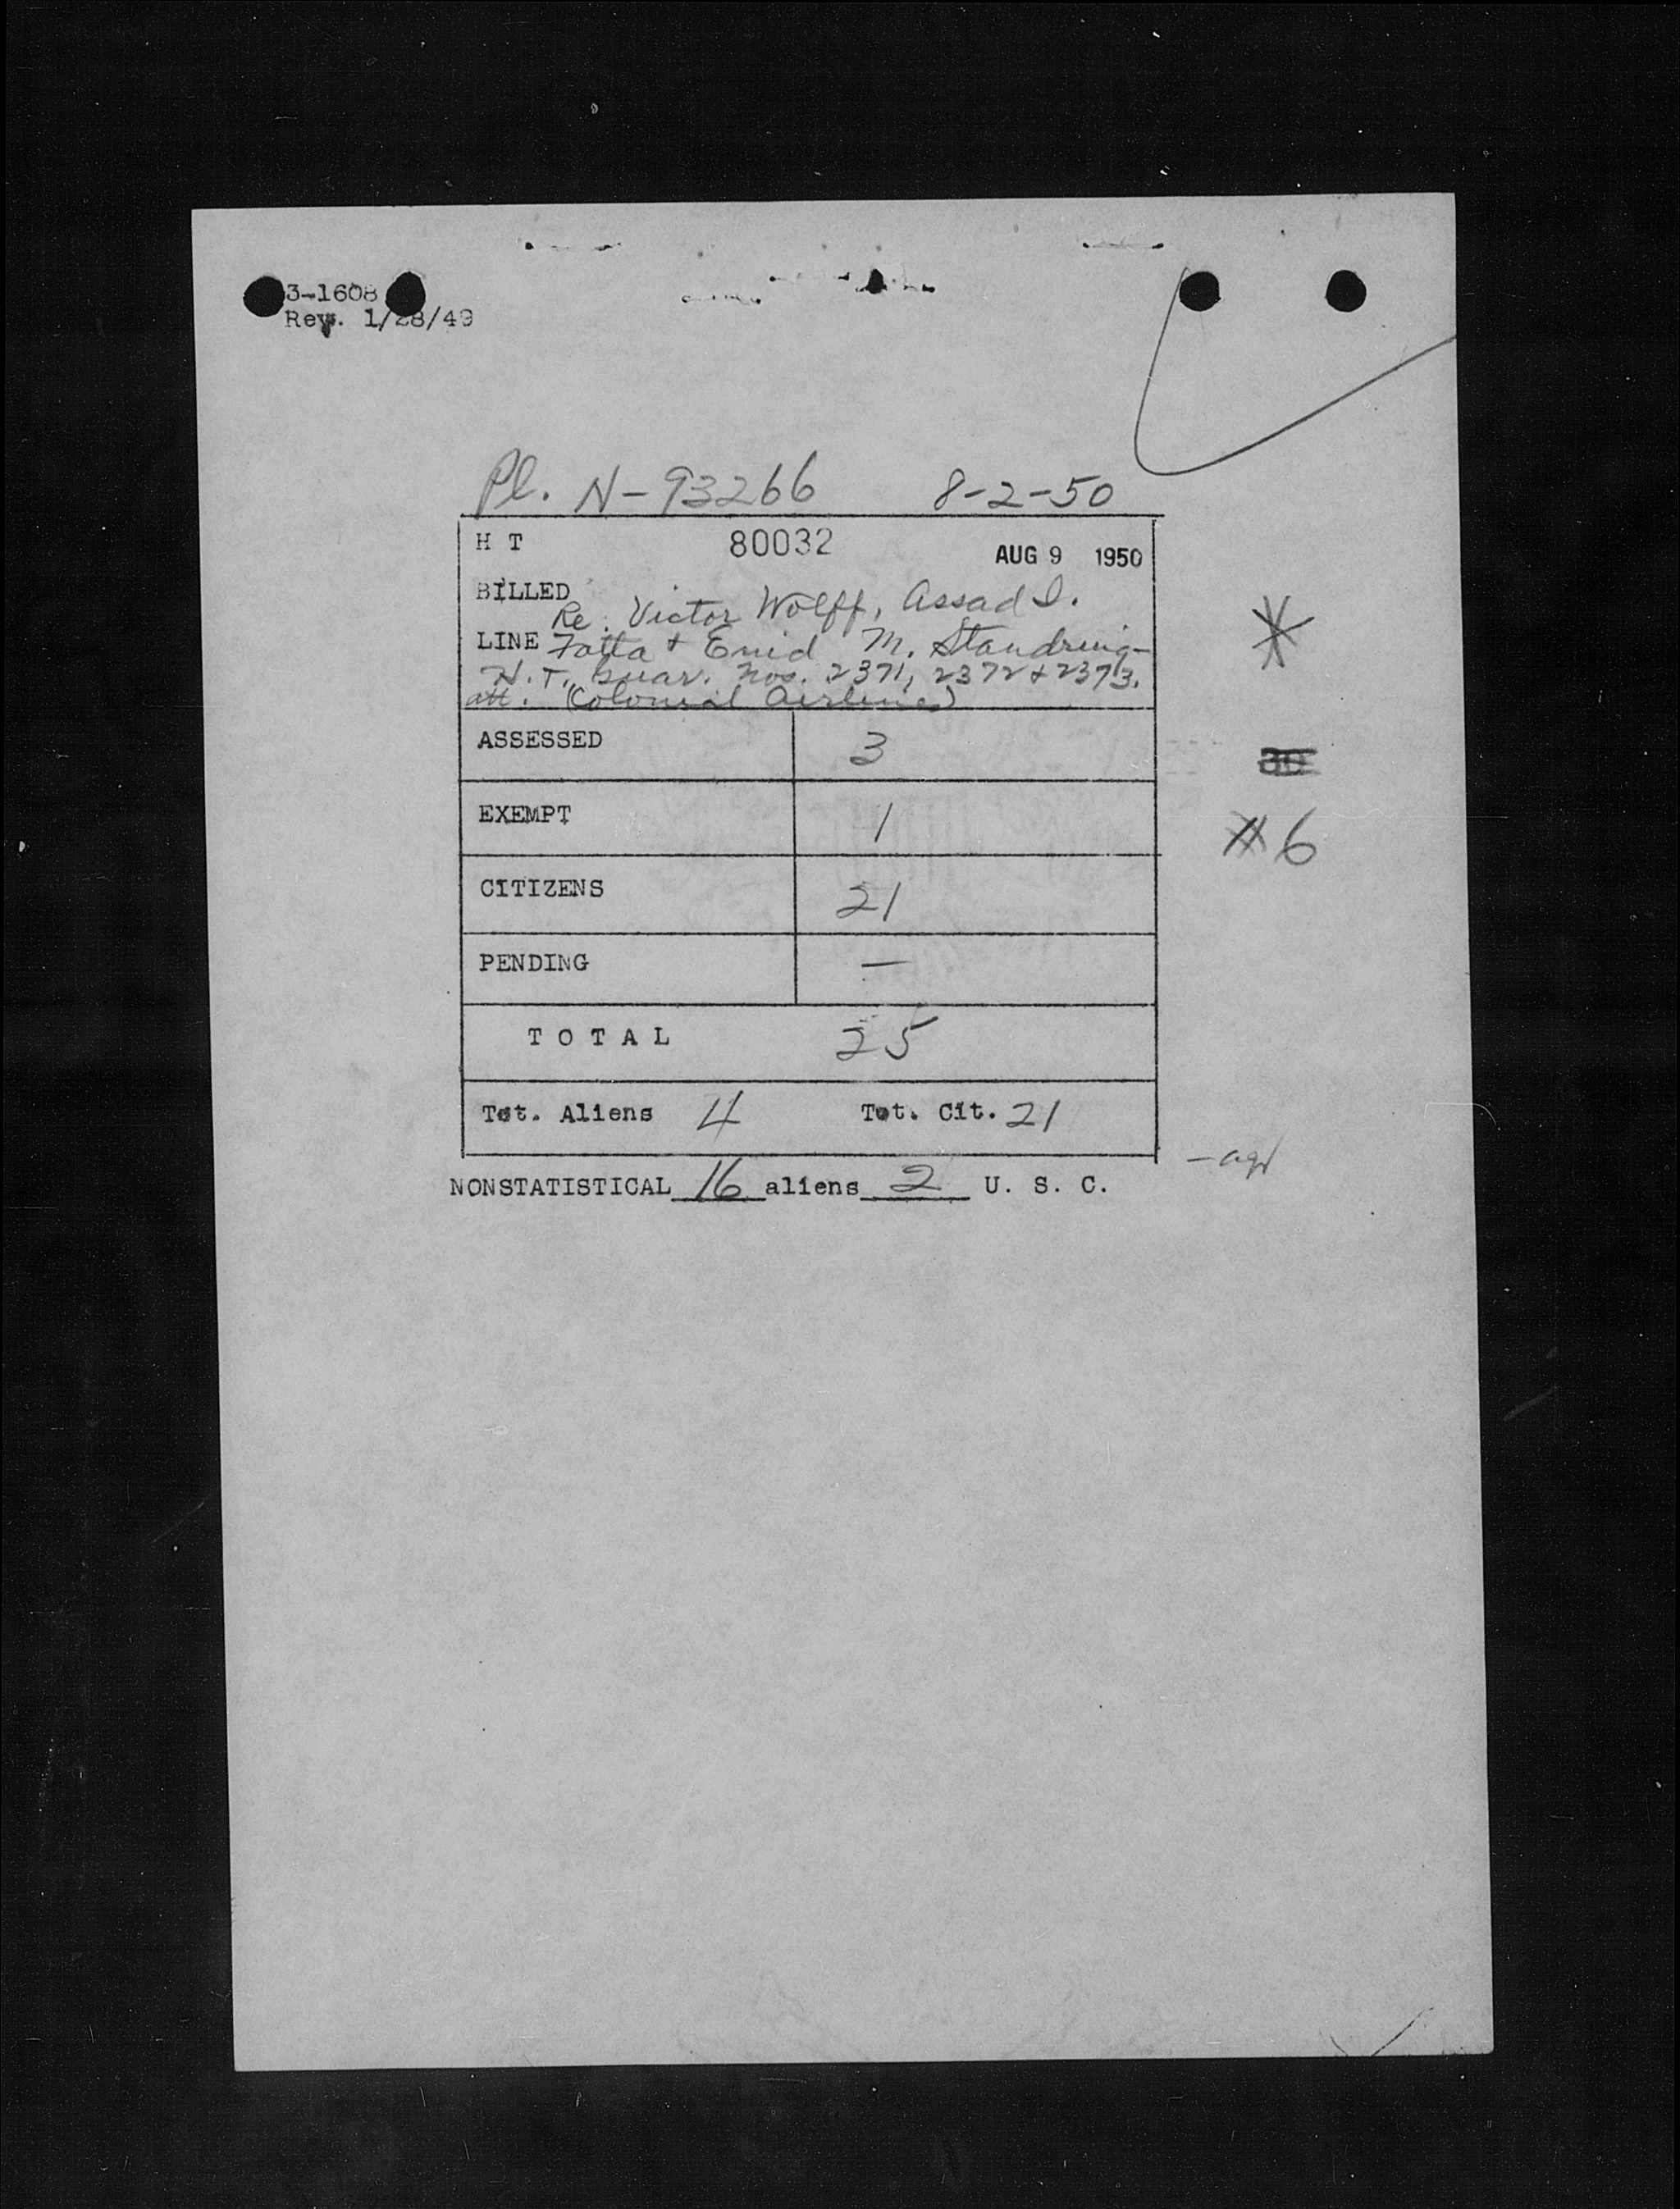 3-1608
Rev. 1/28/49
Pl. N-93266 8-2-50
H T 80032 AUG 9 1950
BILLED Re: Victor Wolff, Assad I.
LINE Fatta + Enid M. Standring-
H.T. Guar. Nos. 2371, 2372 + 2373.
att. (Colonial Airlines)
ASSESSED 3
30
EXEMPT 1
6
CITIZENS 21
PENDING —
TOTAL 25
Tot. Aliens 4 Tot. Cit. 21
NONSTATISTICAL 16 aliens 2 U. S. C.